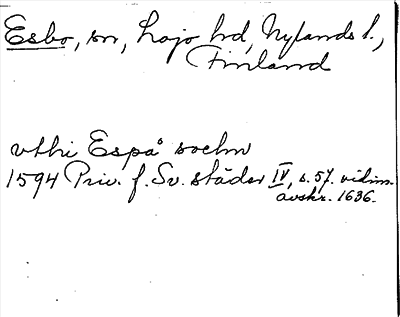 Esbo, sn, Lojo hd, Nylands l.,
Finland
vthi Espå sochn
1594 Priv. f. Sv. städer IV, s. 57. vidim.
avskr. 1636.